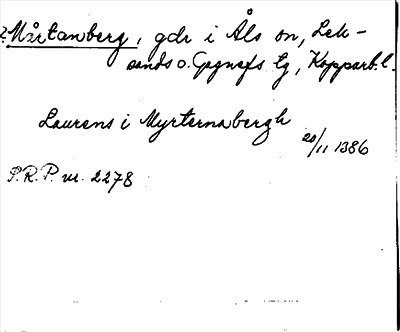 ? Mårtanberg, gdr i Åls sn, Lek-
sands o. Gagnefs tg, Kopparb. l.
Laurens i Myrternabergh
20/11 1386
S.R.P. nr. 2278